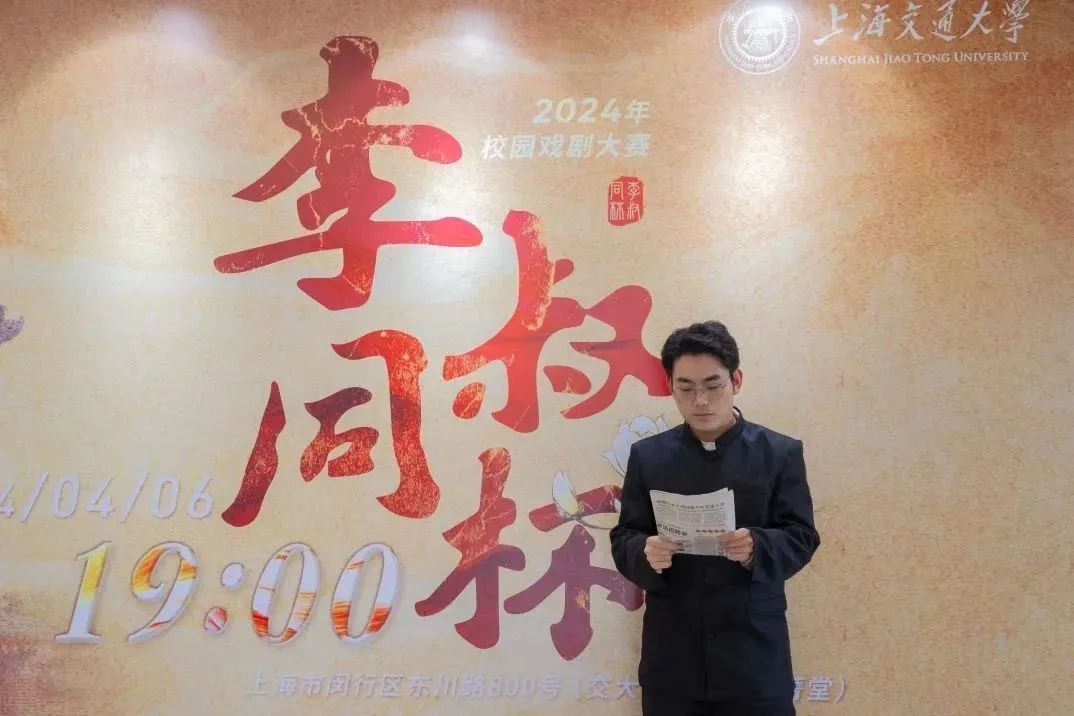 上海交通大學
SHANGHAI JIAO TONG UNIVERSITY
2024年
校园戏剧大赛
李叔
同杯
李叔同杯
4/04/06
19:00
上海市闵行区东川路800号（交大
菁堂）